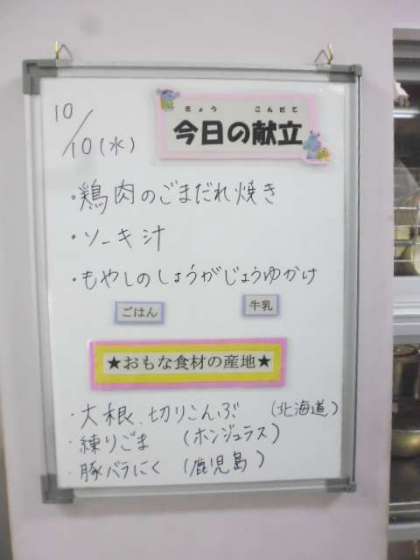 10/10(水)
きょう こんだて
今日の献立
・鶏肉のごまだれ焼き
・ソーキ汁
・もやしのしょうがじょうゆかけ
ごはん 牛乳
★おもな食材の産地★
・大根、切りこんぶ (北海道)
・練りごま (ホンジュラス)
・豚バラにく (鹿児島)